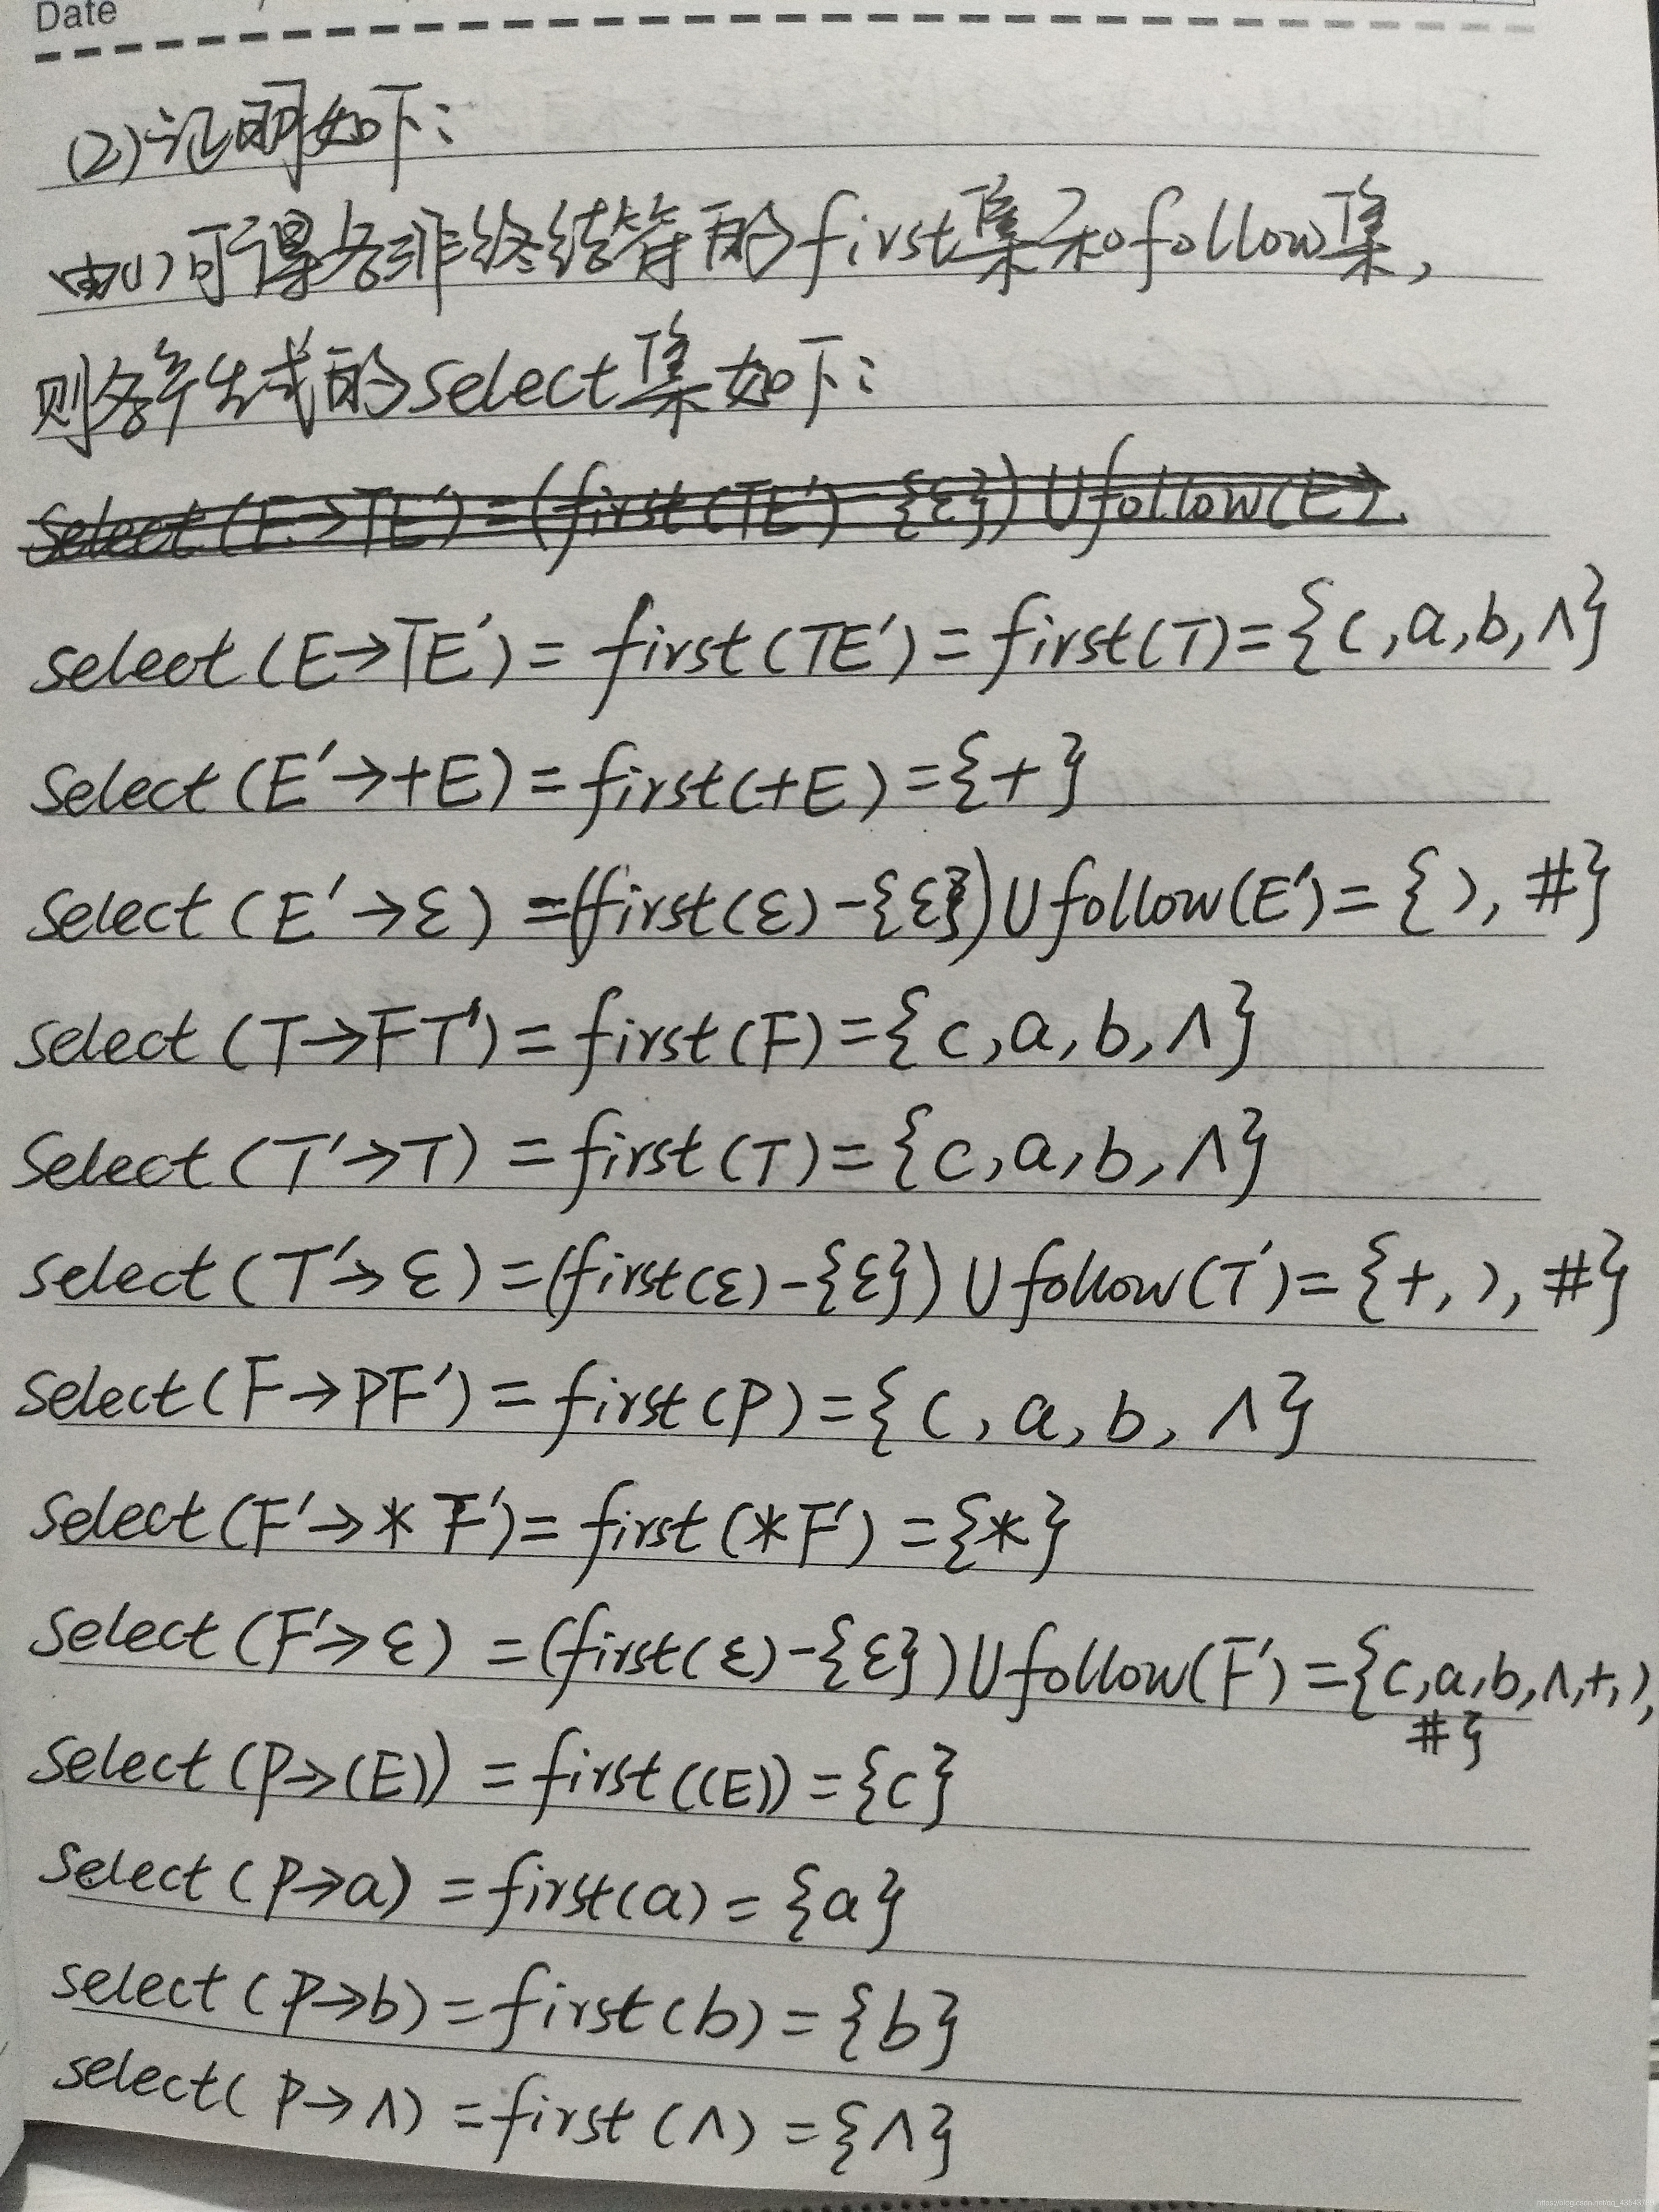 Date
(2)证明如下:
由(1)可得各非终结符的first集和follow集,
则各产生式的select集如下:
Select(E→TE')=(first(TE')-{ε})∪follow(E).
select(E→TE')=first(TE')=first(T)={(,a,b,∧}
Select(E'→+E)=first(+E)={+}
Select(E'→ε)=(first(ε)-{ε})∪follow(E')={),#}
select(T→FT')=first(F)={(,a,b,∧}
Select(T'→T)=first(T)={(,a,b,∧}
select(T'→ε)=(first(ε)-{ε})∪follow(T')={+,),#}
select(F→PF')=first(P)={(,a,b,∧}
select(F'→*F')=first(*F')={*}
select(F'→ε)=(first(ε)-{ε})∪follow(F')={(,a,b,∧,+,),
#}
select(P→(E))=first((E))={(}
select(P→a)=first(a)={a}
select(P→b)=first(b)={b}
select(P→∧)=first(∧)={∧}